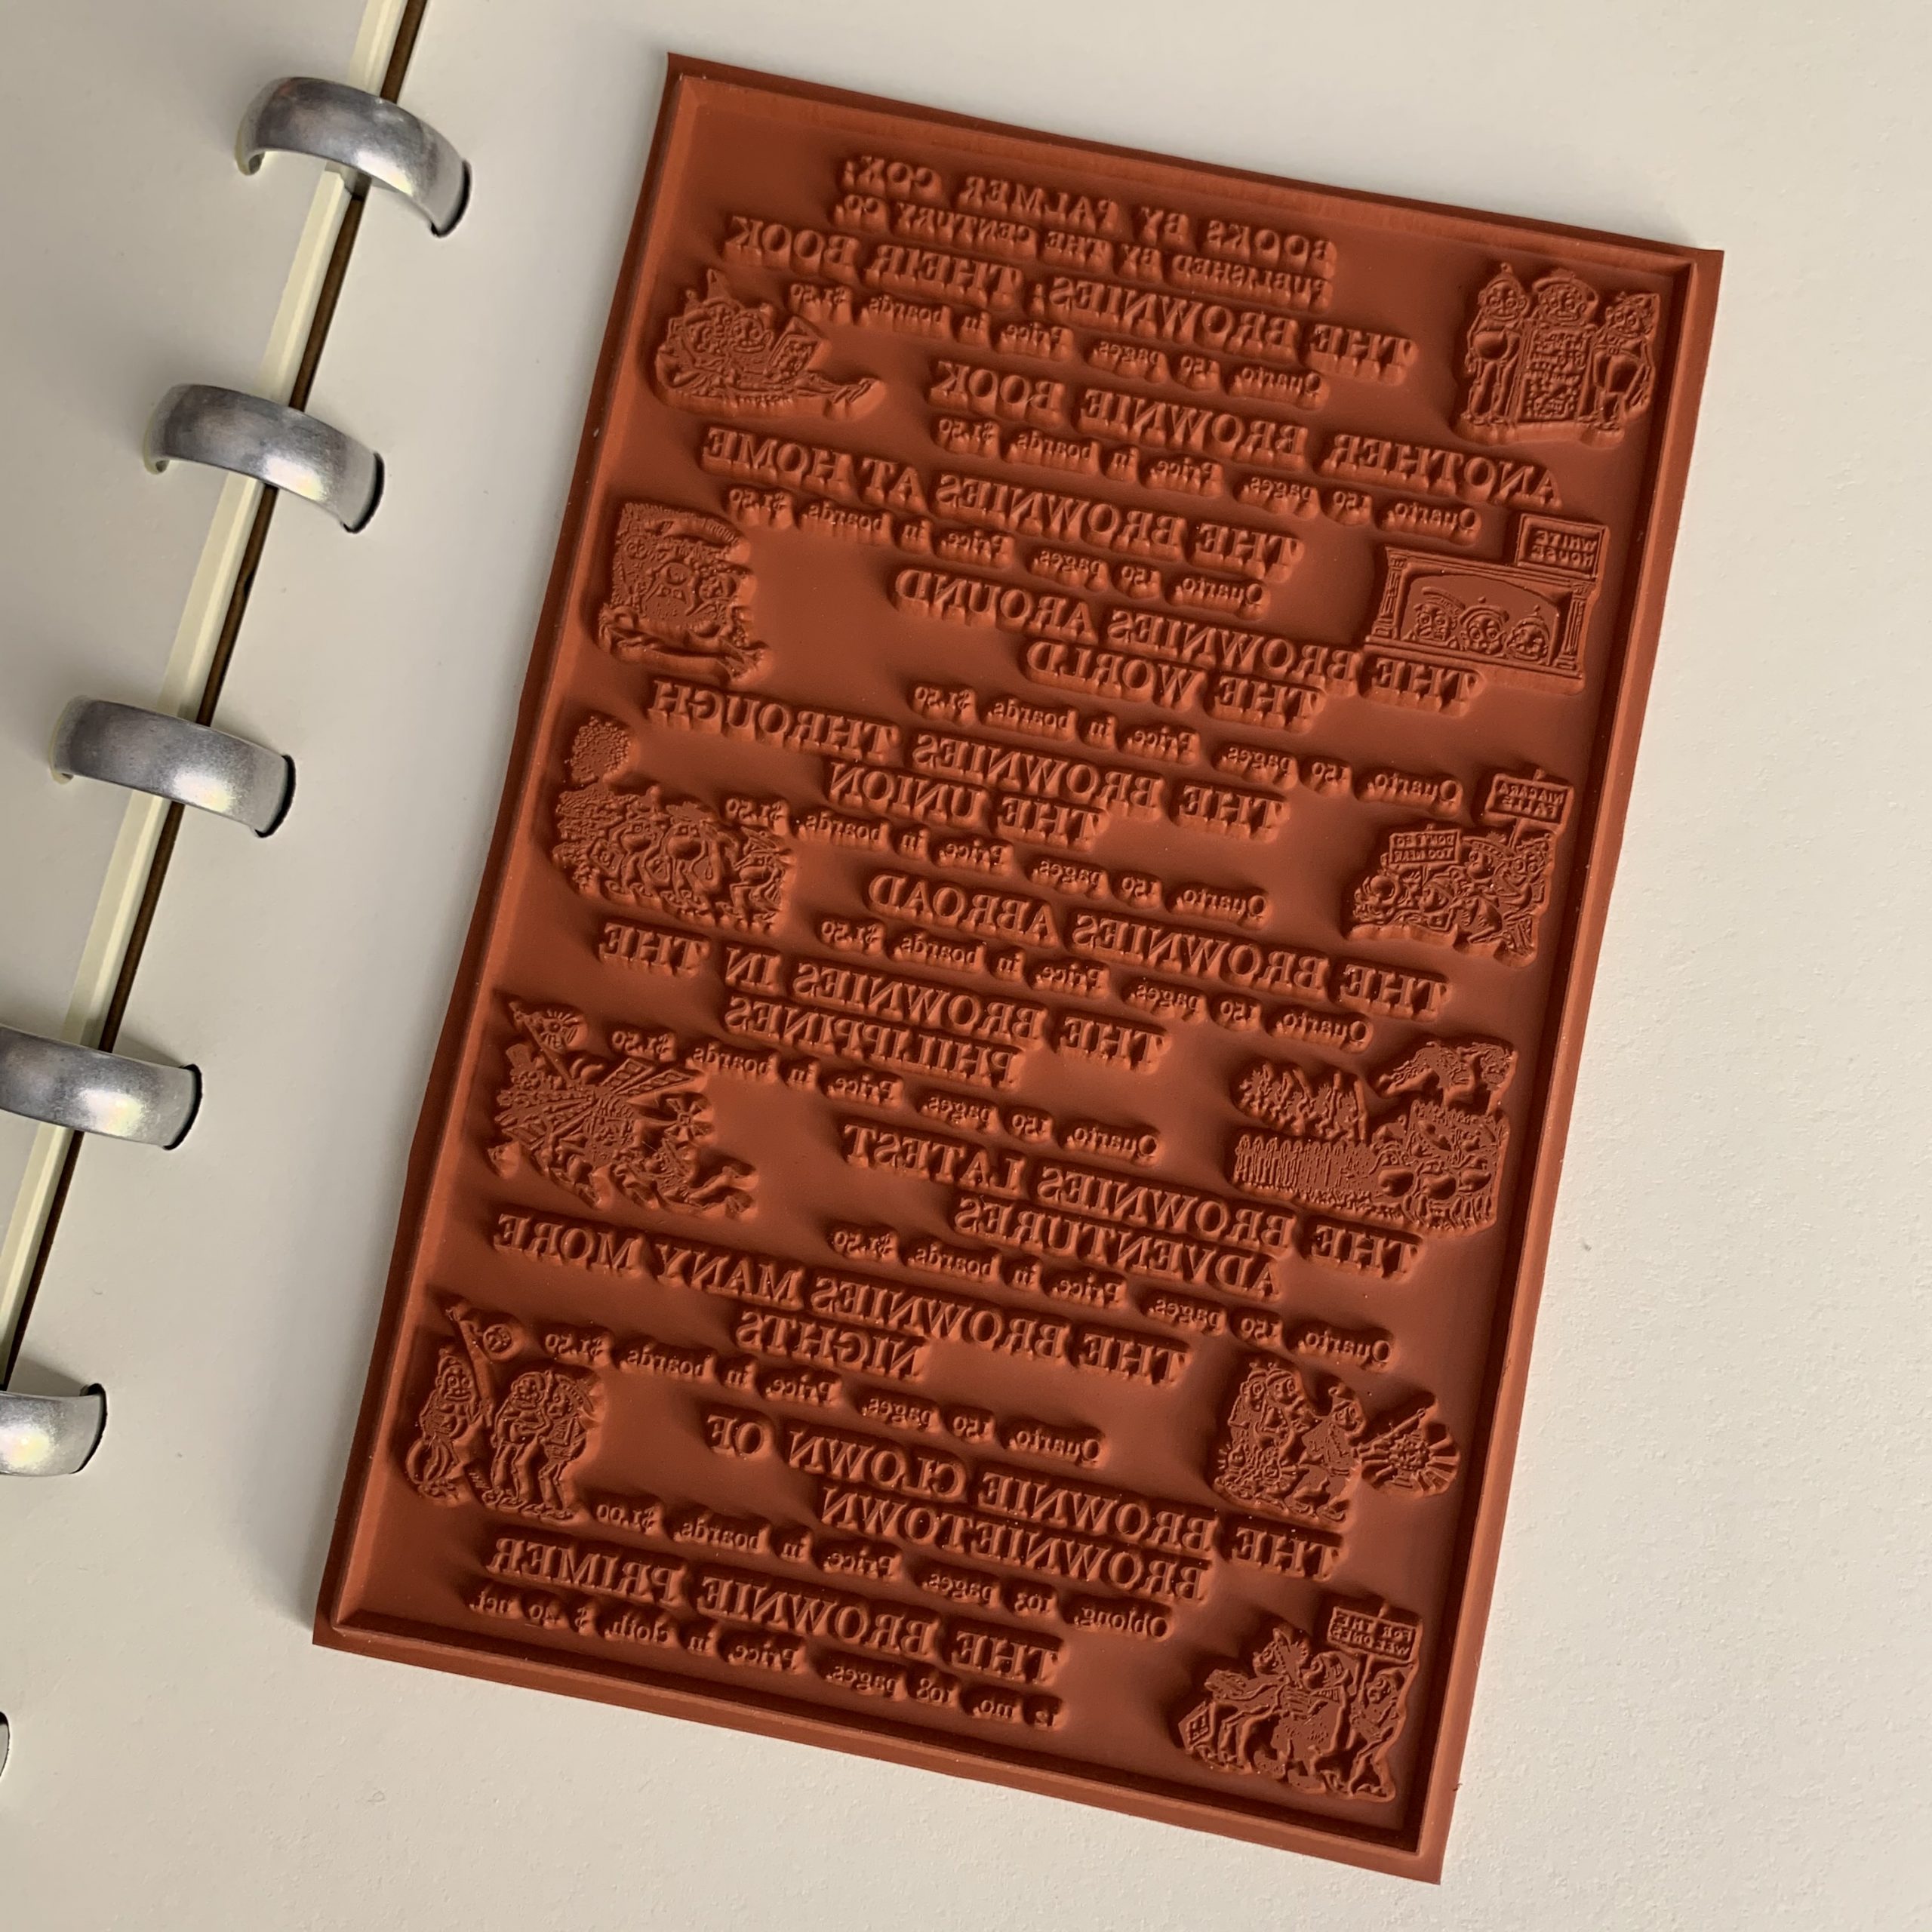 BOOKS BY PALMER COX;
PUBLISHED BY THE CENTURY CO.
THE BROWNIES; THEIR BOOK
Quarto, 150 pages. Price, in boards, $1.50
ANOTHER BROWNIE BOOK
Quarto, 150 pages. Price, in boards, $1.50
THE BROWNIES AT HOME
Quarto, 150 pages. Price, in boards, $1.50
WHITE
HOUSE
THE BROWNIES AROUND
THE WORLD
Quarto, 150 pages. Price, in boards, $1.50
THE BROWNIES THROUGH
THE UNION
Quarto, 150 pages. Price, in boards, $1.50
NIAGARA
FALLS
DON'T GO
TOO NEAR
THE BROWNIES ABROAD
Quarto, 150 pages. Price, in boards, $1.50
THE BROWNIES IN THE
PHILIPPINES
Quarto, 150 pages. Price, in boards, $1.50
THE BROWNIES LATEST
ADVENTURES
Quarto, 150 pages. Price, in boards, $1.50
THE BROWNIES MANY MORE
NIGHTS
Quarto, 150 pages. Price, in boards, $1.50
THE BROWNIE CLOWN OF
BROWNIETOWN
Oblong, 103 pages. Price, in boards, $1.00
THE BROWNIE PRIMER
12 mo, 108 pages. Price, in cloth, $ .40 net.
FOR THE
WEE ONES